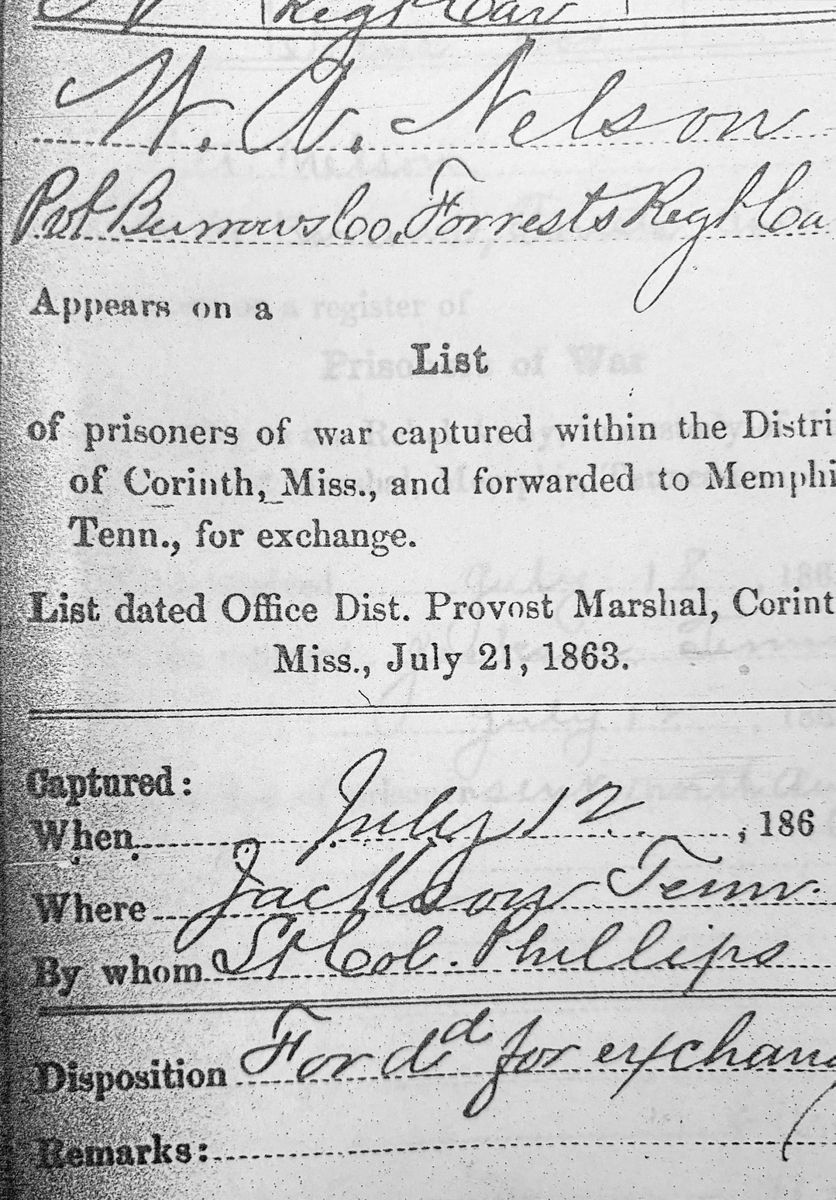 Regt Cav
W. A. Nelson
Pvt Burrows Co, Forrests Regt Ca
Appears on a
List
of prisoners of war captured within the Distri
of Corinth, Miss., and forwarded to Memphi
Tenn., for exchange.
List dated Office Dist. Provost Marshal, Corint
Miss., July 21, 1863.
Captured:
When July 12, 186
Where Jackson Tenn.
By whom Lt Col. Phillips
Disposition Ford'd for exchang
Remarks: